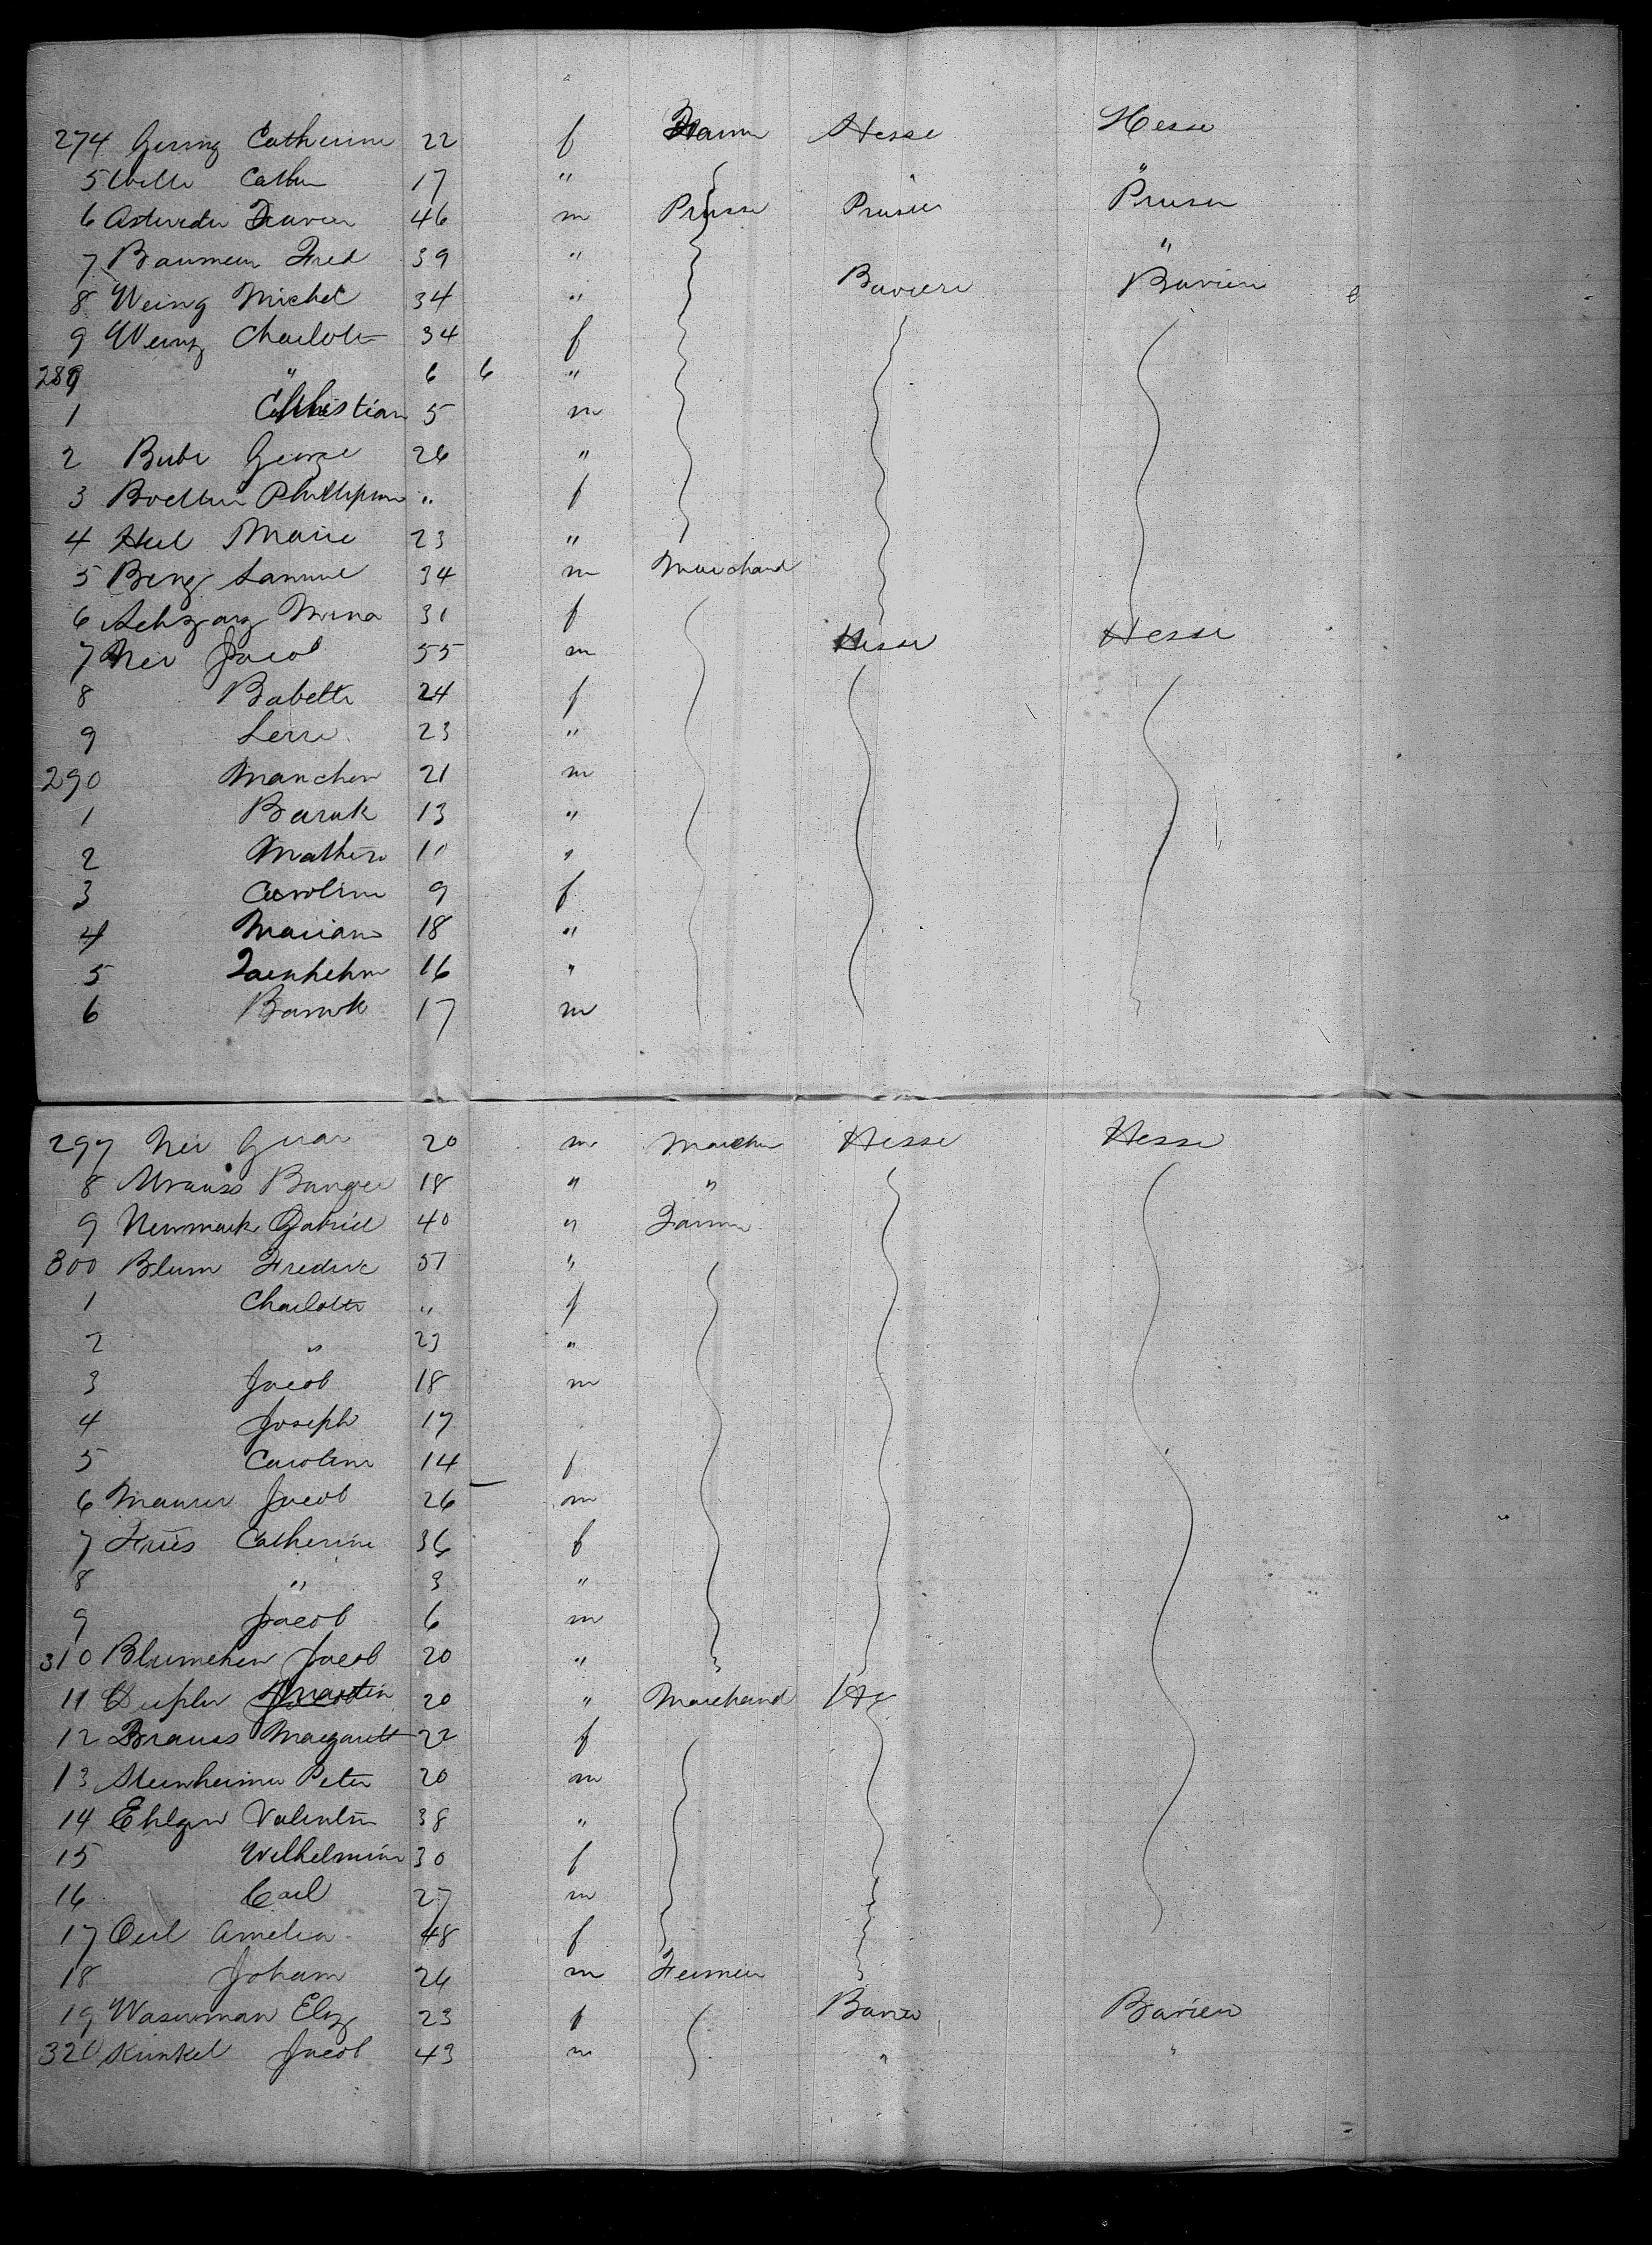 274 Gering Catherine 22 f Farm Hesse Hesse
5 Wille Cathn 17 " " "
6 46 m Prusse Prusse Prusse
7 Fred 39 " "
8 Weing Michel 34 " Baviere Baviere
9 Weing Charlote 34 f
289 " 6 6 "
1 Christian 5 m
2 Bube George 26 "
3 Phillipine " f
4 Marie 23 "
5 Beng Samuel 34 m Marchand
6 Mina 31 f
7 Nei Jacob 55 m Hesse Hesse
8 Babette 24 f
9 23 "
290 Manchen 21 m
1 Baruk 13 "
2 10 "
3 Caroline 9 f
4 Mariane 18 "
5 16 "
6 Baruk 17 m
297 Nei 20 m Hesse Hesse
8 18 " "
9 Newmark Gabriel 40 " Farmer
300 Blum Frederic 57 "
1 Charlotte " f
2 " 23 "
3 Jacob 18 m
4 Joseph 17
5 Caroline 14 f
6 Maurer Jacob 26 m
7 Friis Catherine 36 f
8 " 3 "
9 Jacob 6 m
310 Blumchen Jacob 20 "
11 Martin 20 " Marchand He
12 Brauss Magarett 22 f
13 Steinheimer Peter 20 m
14 Ehlgen Valentin 38 "
15 Wilhelmine 30 f
16 Carl 27 m
17 Oeil Amelia 48 f
18 Joham 26 m Fermier
19 Waserman Eliz 23 f Bavier Bavier
320 Kunkel Jacob 43 m " "